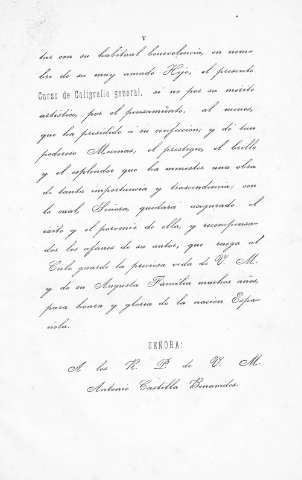 V
tar con su habitual benevolencia, en nom-
bre de su muy amado Hijo, el presente
Curso de Caligrafía general, si no por su mérito
artístico, por el pensamiento, al menos,
que ha presidido a su confección; y de tan
poderoso Mecenas, el prestigio, el brillo
y el esplendor que ha menester una obra
de tanta importancia y trascendencia; con
lo cual, Señora, quedará asegurado el
éxito y el porvenir de ella, y recompensa-
dos los afanes de su autor, que ruega al
Cielo guarde la preciosa vida de V. M.
y de su Augusta Familia muchos años,
para honra y gloria de la nación Espa-
ñola.
SEÑORA:
A los R. P. de V. M.
Antonio Castilla Benavides.